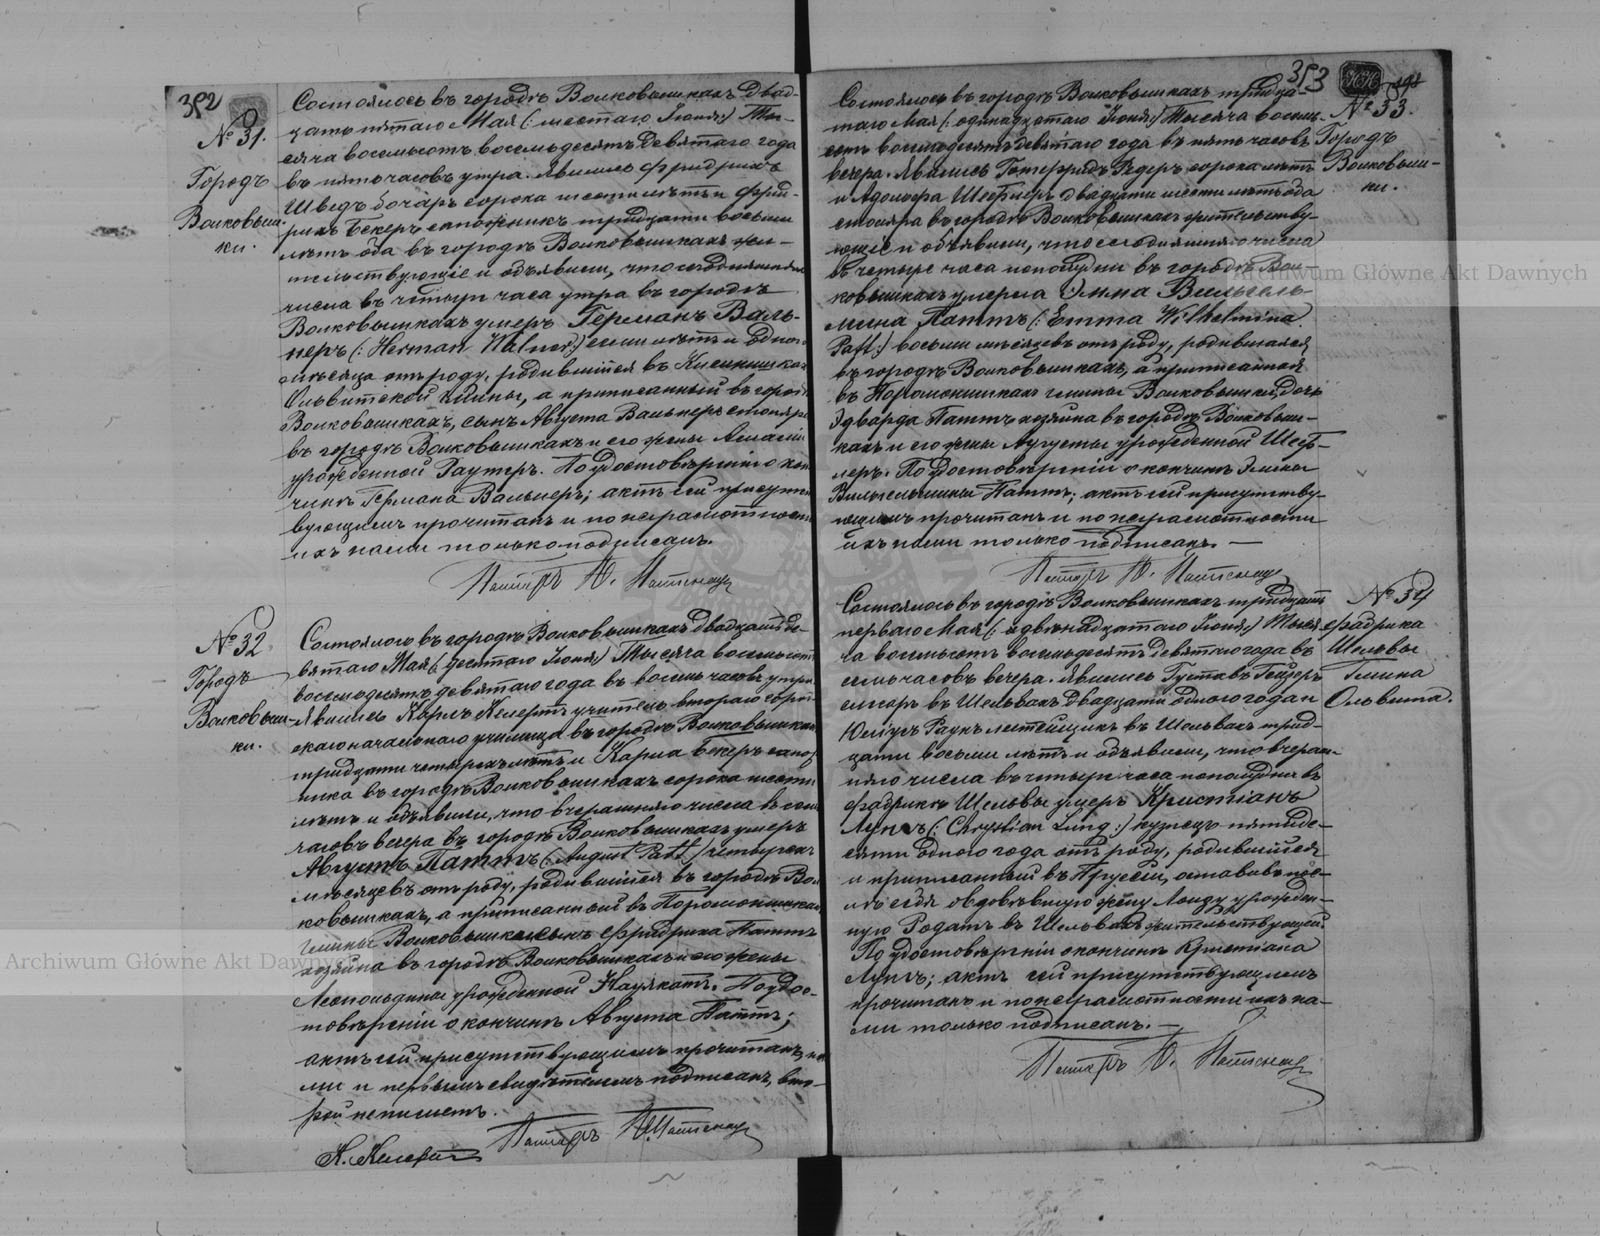 352
№ 31.
Городъ
Волковыш-
ки.
Состоялось въ городѣ Волковышкахъ двад-
цать пятаго Мая (: шестаго Іюня:) Ты-
сяча восемьсотъ восемьдесятъ девятаго года
въ пять часовъ утра. Явились Фридрихъ
Шведъ бочаръ сорока шести лѣтъ и Фрид-
рихъ Бекеръ сапожникъ тридцати восьми
лѣтъ оба въ городѣ Волковышкахъ жи-
тельствующіе и объявили, что сегодняшняго
числа въ четыре часа утра въ городѣ
Волковышкахъ умеръ Германъ Валь-
неръ (: Herman Walner:) семи лѣтъ и одного
мѣсяца отъ роду, родившійся въ
Ольвитской гмины, а приписанный въ городѣ
Волковышкахъ, сынъ Августа Вальнеръ столяра
въ городѣ Волковышкахъ и его жены Амаліи
урожденной Раутеръ. По удостовѣреніи о кон-
чинѣ Германа Вальнеръ; актъ сей присутст-
вующимъ прочитанъ и по неграмотности
ихъ нами только подписанъ.
Пасторъ
№ 32.
Городъ
Волковыш-
ки.
Состоялось въ городѣ Волковышкахъ двадцать де-
вятаго Мая (: десятаго Іюня:) Тысяча восемьсотъ
восемьдесятъ девятаго года въ восемь часовъ утра.
Явились Карлъ учитель втораго город-
скаго начальнаго училища въ городѣ Волковышкахъ
тридцати четырехъ лѣтъ и Карла Бекеръ сапож-
ника въ городѣ Волковышкахъ сорока шести
лѣтъ и объявили, что вчерашняго числа въ семь
часовъ вечера въ городѣ Волковышкахъ умеръ
Августъ Паттъ (: August Patt:) четырехъ
мѣсяцевъ отъ роду, родившійся въ городѣ Вол-
ковышкахъ, а приписанный въ
гмины Волковышки сынъ Фридриха Паттъ
хозяина въ городѣ Волковышкахъ и его жены
Леопольдины урожденной. По удос-
товѣреніи о кончинѣ Августа Паттъ;
актъ сей присутствующимъ прочитанъ, на-
ми и первымъ свидѣтелемъ подписанъ, вто-
рой не пишетъ.
Пасторъ
353
№ 33.
Городъ
Волковыш-
ки.
Состоялось въ городѣ Волковышкахъ тридца-
таго Мая (: одинадцатаго Іюня:) Тысяча восемь-
сотъ восемьдесятъ девятаго года въ пять часовъ
вечера. Явились Готфридъ Редеръ сорока лѣтъ
и Адольфъ Шефлеръ двадцати шести лѣтъ оба
столяра въ городѣ Волковышкахъ жительству-
ющіе и объявили, что сегодняшняго числа
въ четыре часа пополудни въ городѣ Вол-
ковышкахъ умерла Эмма Вильгель-
мина Паттъ (: Emma Wilhelmina
Patt:) восьми мѣсяцевъ отъ роду, родившаяся
въ городѣ Волковышкахъ, а приписанной
въ гмины Волковышки, дочь
Эдварда Паттъ хозяина въ городѣ Волковыш-
кахъ и его жены Аугусты урожденной Шеф-
леръ. По удостовѣреніи о кончинѣ Эммы
Вильгельмины Паттъ; актъ сей присутству-
ющимъ прочитанъ и по неграмотности
ихъ нами только подписанъ. —
Пасторъ
№ 34
Фабрика
Шельвы
Гмина
Ольвита.
Состоялось въ городѣ Волковышкахъ тридцать
перваго Мая (: двѣнадцатаго Іюня:) Тысяч-
а восемьсотъ восемьдесятъ девятаго года въ
семь часовъ вечера. Явились Густавъ
въ Шельвахъ двадцати одного года и
Юліусъ въ Шельвахъ трид-
цати восьми лѣтъ и объявили, что вчераш-
няго числа въ четыре часа пополудни въ
фабрикѣ Шельвы умеръ Христіанъ
Лунгъ (: Chrystian Lung:) кузнецъ пятиде-
сяти одного года отъ роду, родившійся
и приписанный въ Пруссіи, оставивъ пос-
лѣ себя овдовѣвшую жену Луизу урожден-
ную Родатъ въ Шельвахъ жительствующую.
По удостовѣреніи о кончинѣ Христіана
Лунгъ; актъ сей присутствующимъ
прочитанъ и по неграмотности ихъ на-
ми только подписанъ. —
Пасторъ
Archiwum Główne Akt Dawnych
Archiwum Główne Akt Dawnych